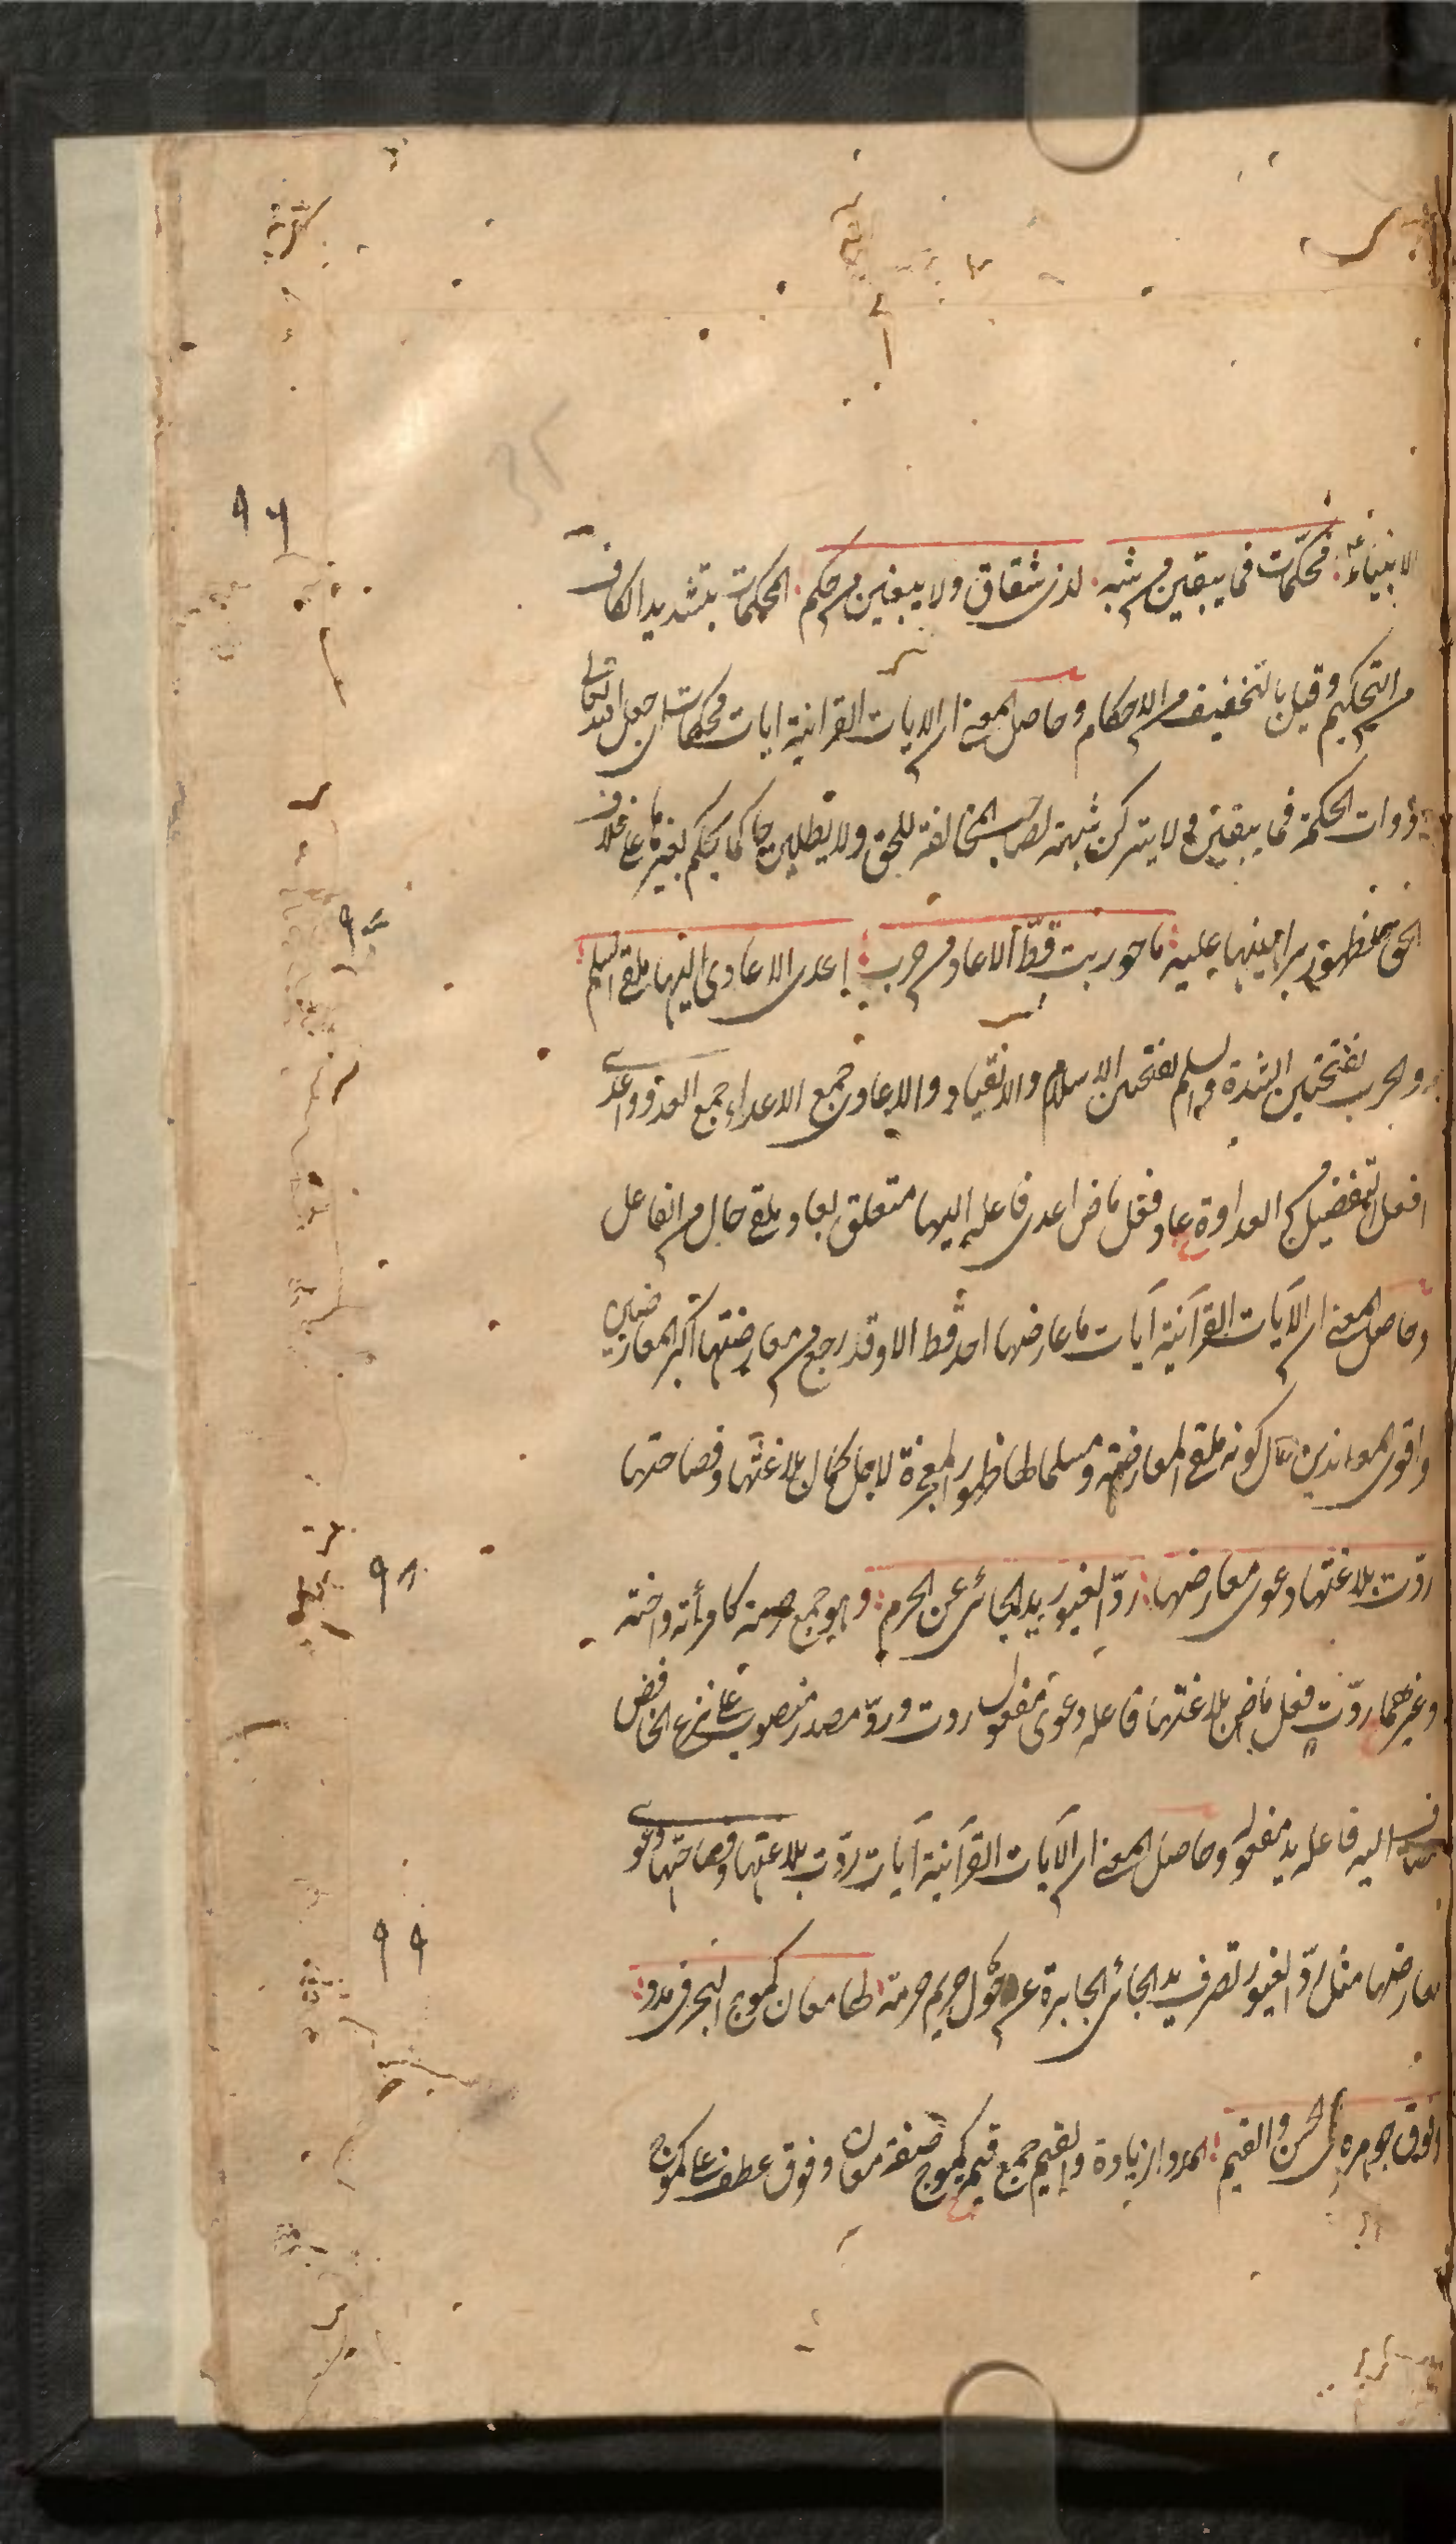 الانبیاءؑ: محكّمات فما يبقين من شبه. لذى شقاق ولا يبغين من حكم: المحكمات بتشديد الكاف
٩٦
من التحكيم وقيل بالتخفيف من الاحكام وحاصل المعنى ان الايات القرانية ايات محكمات اى جعل الله تعالى
ذوات الحكمة فما يبقين اى لا يتركن شبهة لصاحب المخالفة للحق ولا يطلبن حاكما يحكم بغيرها على خلاف
الحق لظهور براهينها عليه: ما حوربت قطّ الا عاد من حرب: اعدى الاعادى اليها ملقى السلم:
٩٧
والحرب بفتحتين الشدة والسلم بفتحتين الاسلام والانقياد والاعادى جمع الاعداء جمع العدو واعدى
افعل التفضيل من العداوة عاد فعل ماض اعدى فاعله اليها متعلق بعاد وملقى حال من الفاعل
وحاصل المعنى ان الآيات القرآنية آيات ما عارضها احد قط الا وقد رجع من معارضتها اكبر المعارضين
واقوى المعاندين حال كونه ملقى المعارضة ومسلما لها ظهور المعجزة لاجل كمال بلاغتها وفصاحتها
ردّت بلاغتها دعوى معارضها: ردّ الغيور يد الجانى عن الحرم: وهو جمع حرمة كامرأته واخته
٩٨
وغيرهما ردّت فعل ماض بلاغتها فاعله دعوى مفعول ردت وردّ مصدر منصوب على نزع الخافض
مضاف اليه فاعله يد مفعوله وحاصل المعنى ان الآيات القرآنية آيات ردّت بلاغتها وفصاحتها دعوى
معارضها مثل ردّ الغيور تصرف يد الجانى الجابرة عن حول حريم حرمته لها معان كموج البحر فى مدد:
٩٩
وفوق جوهره فى الحسن والقيم: المدد الزيادة والقيم جمع قيمة كموج صفة معان وفوق عطف على كموج